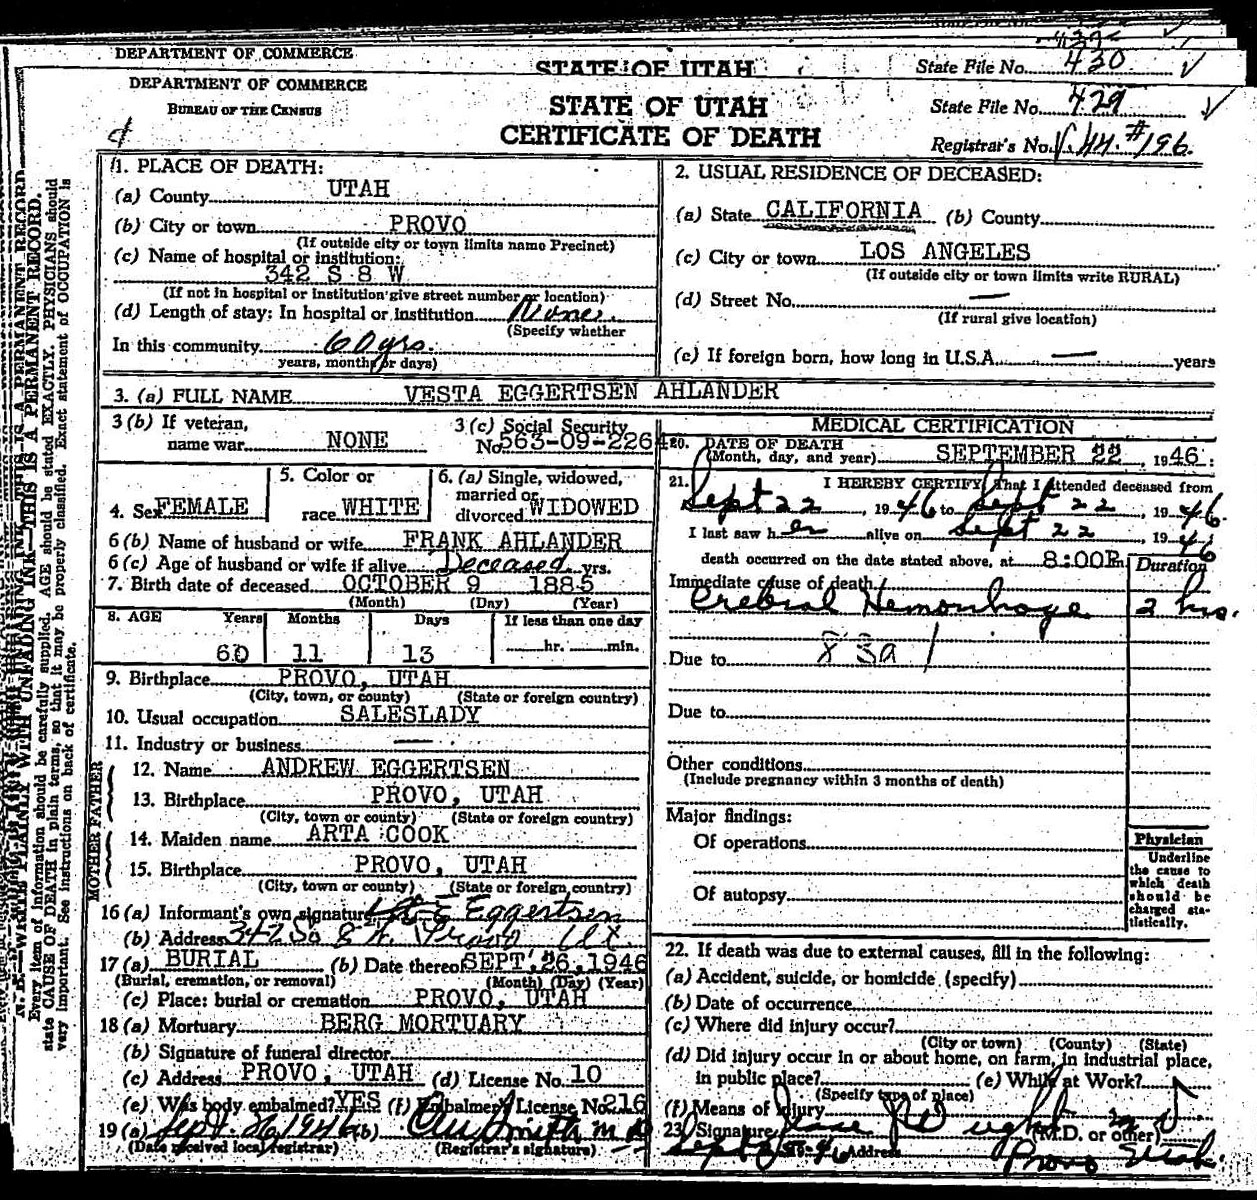 DEPARTMENT OF COMMERCE
STATE OF UTAH
State File No. 430
DEPARTMENT OF COMMERCE
BUREAU OF THE CENSUS
STATE OF UTAH
State File No. 429
CERTIFICATE OF DEATH
Registrar's No. V.44.#196.
WRITE PLAINLY WITH UNFADING INK—THIS IS A PERMANENT RECORD.
Every item of information should be carefully supplied. AGE should be stated EXACTLY. PHYSICIANS should
state CAUSE OF DEATH in plain terms, so that it may be properly classified. Exact statement of OCCUPATION is
very important. See instructions on back of certificate.
1. PLACE OF DEATH:
(a) County UTAH
(b) City or town PROVO
(If outside city or town limits name Precinct)
(c) Name of hospital or institution:
342 S 8 W
(If not in hospital or institution give street number or location)
(d) Length of stay: In hospital or institution None.
(Specify whether
In this community 60 yrs.
years, months or days)
2. USUAL RESIDENCE OF DECEASED:
(a) State CALIFORNIA (b) County
(c) City or town LOS ANGELES
(If outside city or town limits write RURAL)
(d) Street No. —
(If rural give location)
(e) If foreign born, how long in U.S.A. — years
3. (a) FULL NAME VESTA EGGERTSEN AHLANDER
3 (b) If veteran,
name war NONE
3 (c) Social Security
No. 563-09-2264
4. Sex FEMALE
5. Color or
race WHITE
6. (a) Single, widowed,
married or
divorced WIDOWED
6 (b) Name of husband or wife FRANK AHLANDER
6 (c) Age of husband or wife if alive Deceased yrs.
7. Birth date of deceased OCTOBER 9 1885
(Month) (Day) (Year)
8. AGE Years Months Days If less than one day
60 11 13 hr. min.
9. Birthplace PROVO, UTAH
(City, town, or county) (State or foreign country)
10. Usual occupation SALESLADY
11. Industry or business —
FATHER
12. Name ANDREW EGGERTSEN
13. Birthplace PROVO, UTAH
(City, town or county) (State or foreign country)
MOTHER
14. Maiden name ARTA COOK
15. Birthplace PROVO, UTAH
(City, town or county) (State or foreign country)
16 (a) Informant's own signature E Eggertsen
(b) Address 342 So 8 W. Provo Ut.
17 (a) BURIAL (b) Date thereof SEPT, 26, 1946
(Burial, cremation, or removal) (Month) (Day) (Year)
(c) Place: burial or cremation PROVO, UTAH
18 (a) Mortuary BERG MORTUARY
(b) Signature of funeral director
(c) Address PROVO, UTAH (d) License No. 10
(e) Was body embalmed? YES (f) Embalmer's License No. 216
19 (a) Sept. 26, 1946 (b) Smith M D
(Date received local registrar) (Registrar's signature)
MEDICAL CERTIFICATION
20. DATE OF DEATH
(Month, day, and year) SEPTEMBER 22, 1946
21. I HEREBY CERTIFY, That I attended deceased from
Sept 22, 1946 to Sept 22, 1946.
I last saw her alive on Sept 22, 1946
death occurred on the date stated above, at 8:00P m Duration
Immediate cause of death
Crebral Hemorrhage 2 hrs.
Due to 83a 1
Due to
Other conditions
(Include pregnancy within 3 months of death)
Major findings:
Of operations
Of autopsy
Physician
Underline
the cause to
which death
should be
charged sta-
tistically.
22. If death was due to external causes, fill in the following:
(a) Accident, suicide, or homicide (specify)
(b) Date of occurrence
(c) Where did injury occur?
(City or town) (County) (State)
(d) Did injury occur in or about home, on farm, in industrial place,
in public place? (e) While at Work?
(Specify type of place)
(f) Means of Injury
23. Signature M D
(M.D. or other)
Address Provo Utah.